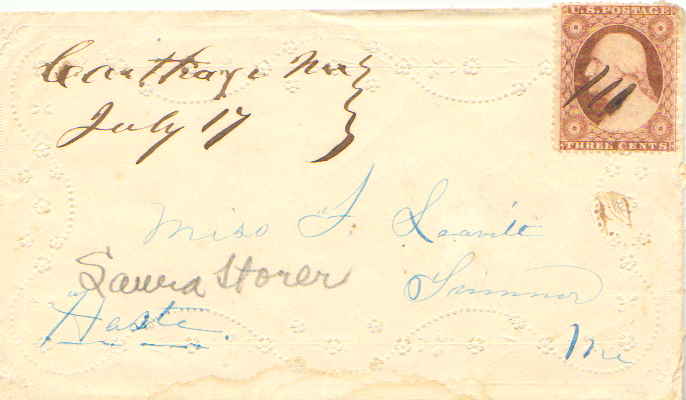 U.S. POSTAGE
THREE CENTS
Carthage Me
July 17
Miss F. Leavitt
Laura Storer
Sumner
"Haste".
Me